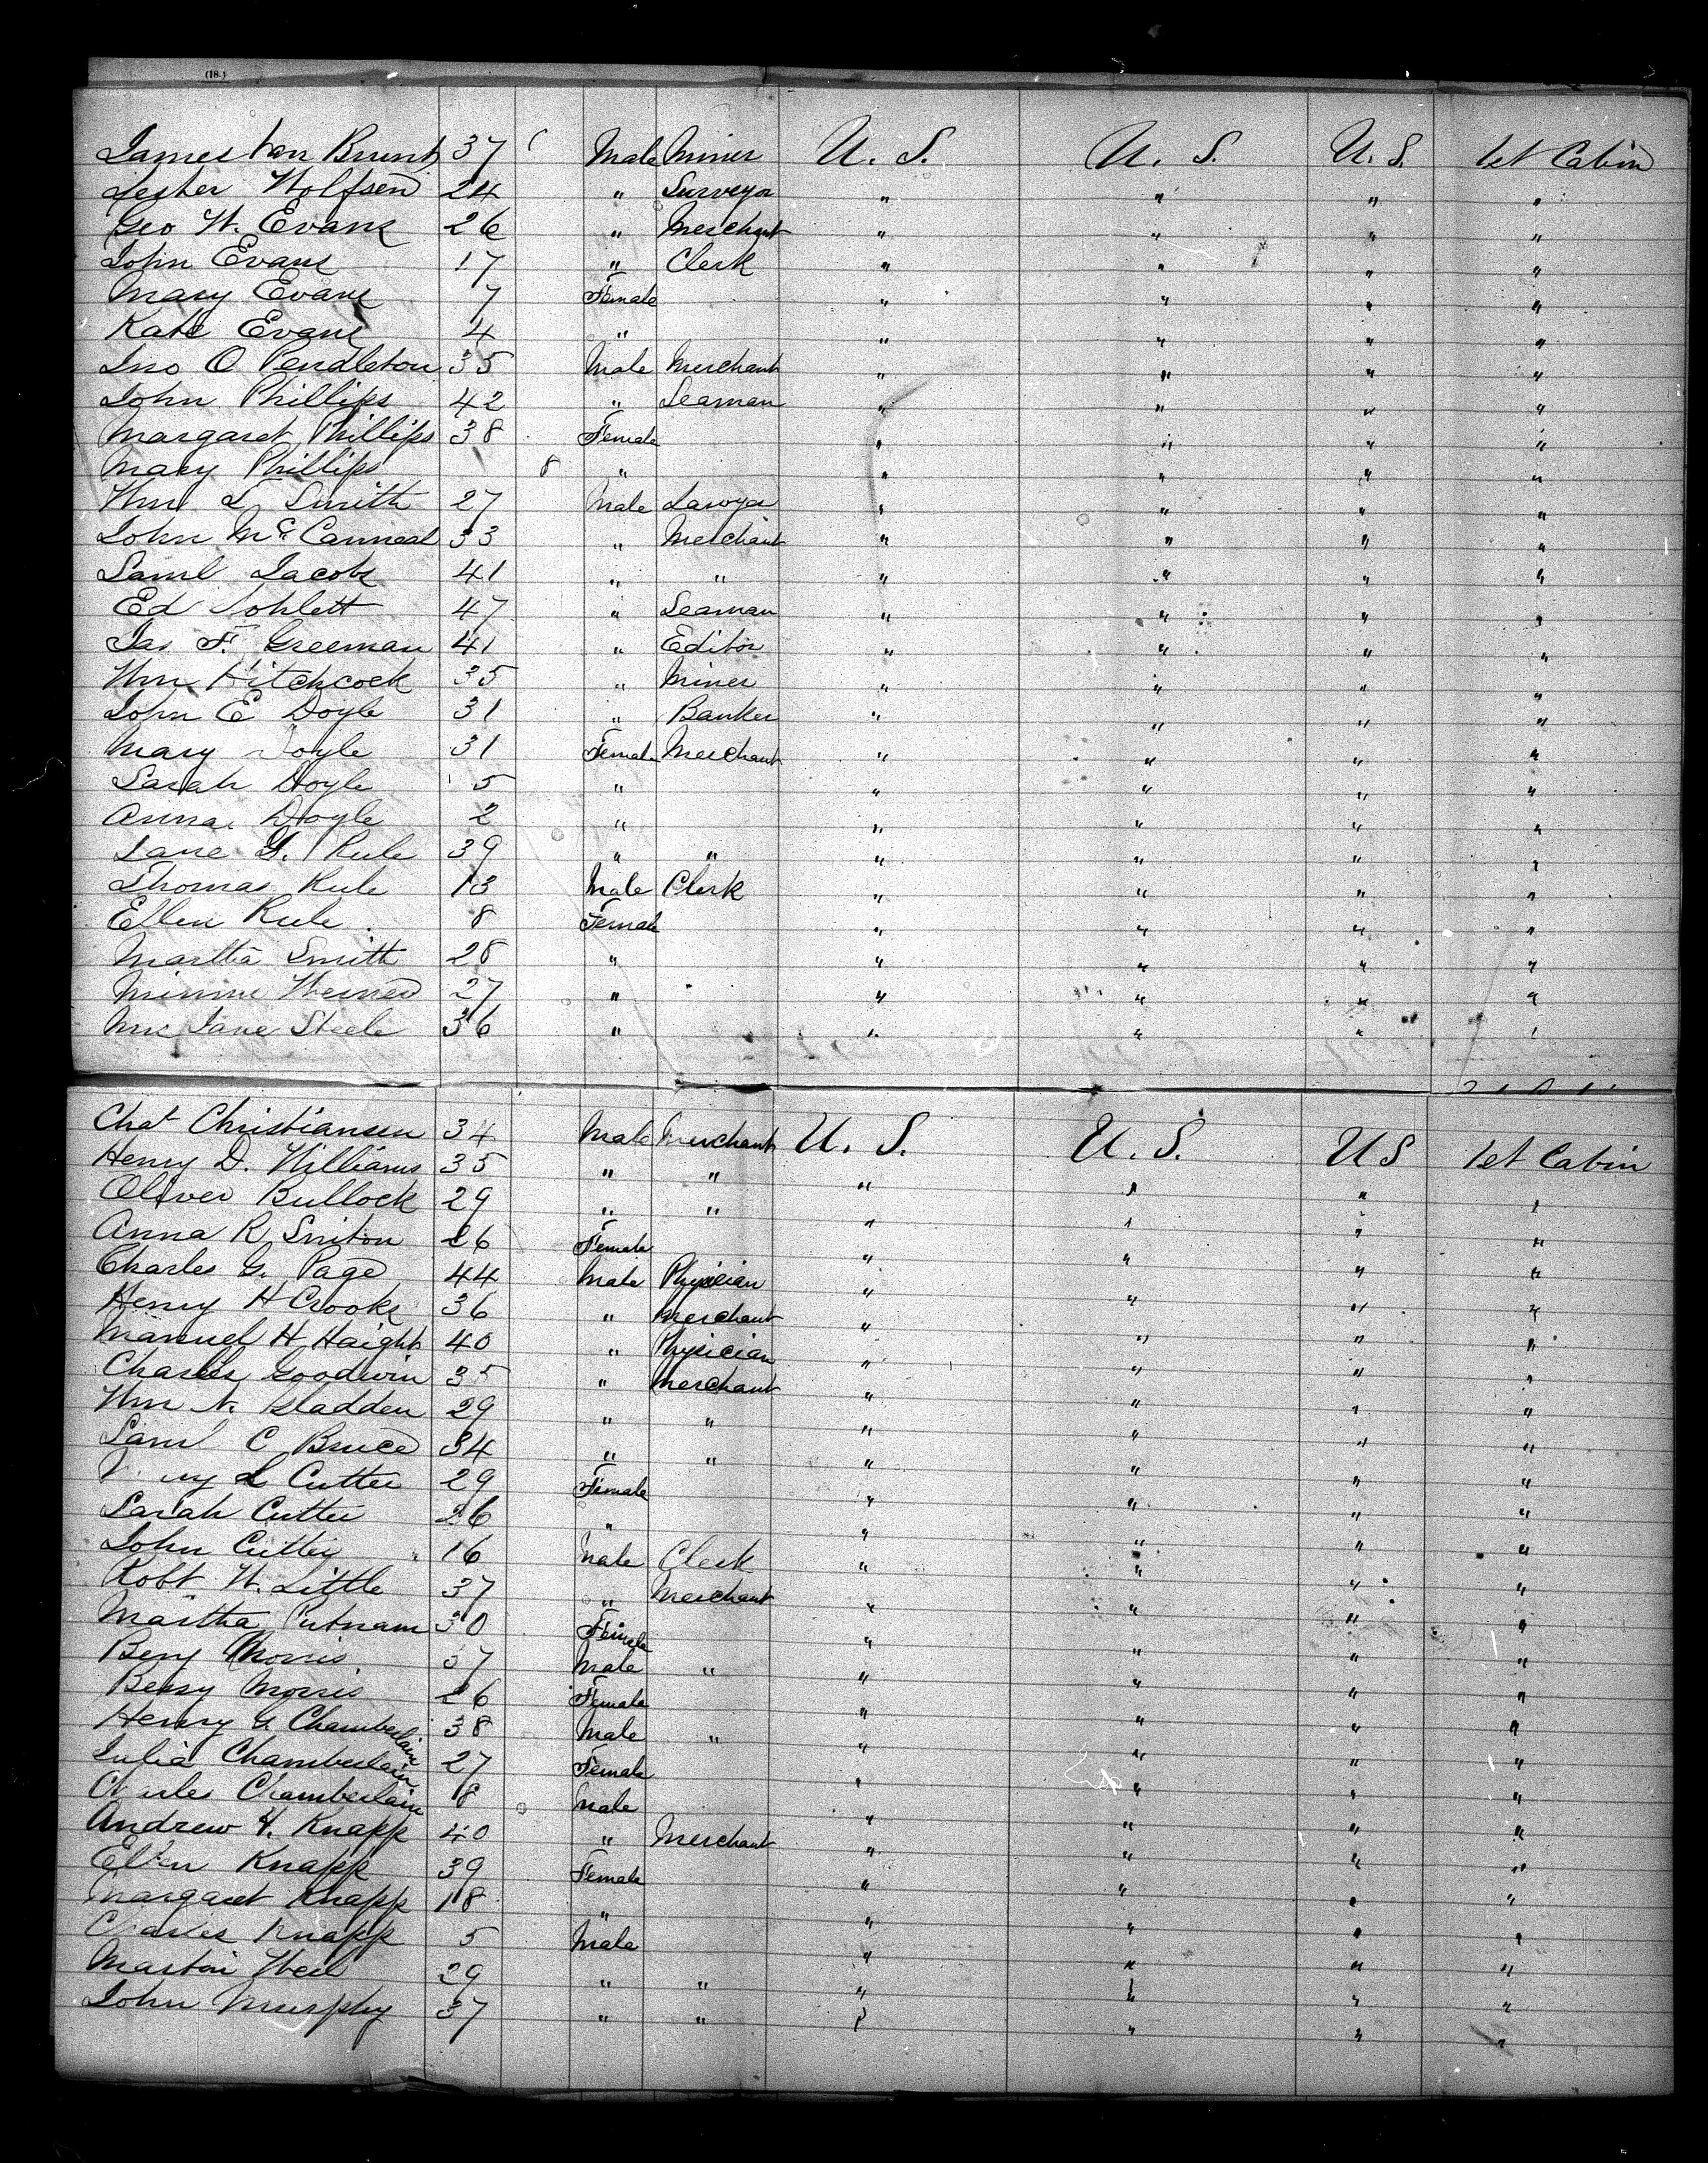 (18-)
James Van Brunt 37 Male Miner U. S. U. S. U. S. 1st Cabin
Lesher Wolfsen 24 " Surveyor " " " "
Geo W. Evans 26 " Merchant " " " "
John Evans 17 " Clerk " " " "
Mary Evans 7 Female " " " "
Kate Evans 4 " " " " "
Jno O Pendleton 35 Male Merchant " " " "
John Phillips 42 " Seaman " " " "
Margaret Phillips 38 Female " " " "
Mary Phillips 8 " " " " "
Wm L Smith 27 Male Lawyer " " " "
John Mc Canneal 33 " Merchant " " " "
Saml Jacobs 41 " " " " " "
Ed 47 " Seaman " " " "
Jas F. Greeman 41 " Editor " " " "
Wm Hitchcock 35 " Miner " " " "
John E Doyle 31 " Banker " " " "
Mary Doyle 31 Female Merchant " " " "
Sarah Doyle 5 " " " " "
Anna Doyle 2 " " " " "
Jane G. Rule 39 " " " " " "
Thomas Rule 13 Male Clerk " " " "
Ellen Rule 8 Female " " " "
Martha Smith 28 " " " " "
Minnie Werner 27 " " " " "
Mrs Jane Steele 36 " " " " "
Chas Christiansen 34 Male Merchant U. S. U. S. U S 1st Cabin
Henry D. Williams 35 " " " " " "
Oliver Bullock 29 " " " " " "
Anna R Sniton 26 Female " " " "
Charles G. Page 44 Male Physician " " " "
Henry H Crooks 36 " Merchant " " " "
Manuel H Haight 40 " Physician " " " "
Charles Goodwin 35 " Merchant " " " "
Wm N. Gladden 29 " " " " " "
Saml C Bruce 34 " " " " " "
L Cutter 29 Female " " " "
Sarah Cutter 26 " " " " "
John Cutter 16 Male Clerk " " " "
Robt W. Little 37 " Merchant " " " "
Martha Putnam 30 Female " " " "
Benj Morris 37 Male " " " " "
Betsy Morris 26 Female " " " "
Henry G Chamberlain 38 Male " " " " "
Julia Chamberlain 27 Female " " " "
Charles Chamberlain 8 Male " " " "
Andrew H. Knapp 40 " Merchant " " " "
Ellen Knapp 39 Female " " " "
Margaret Knapp 18 " " " " "
Charles Knapp 5 Male " " " "
Martin Weil 29 " " " " " "
John Murphy 37 " " " " " "